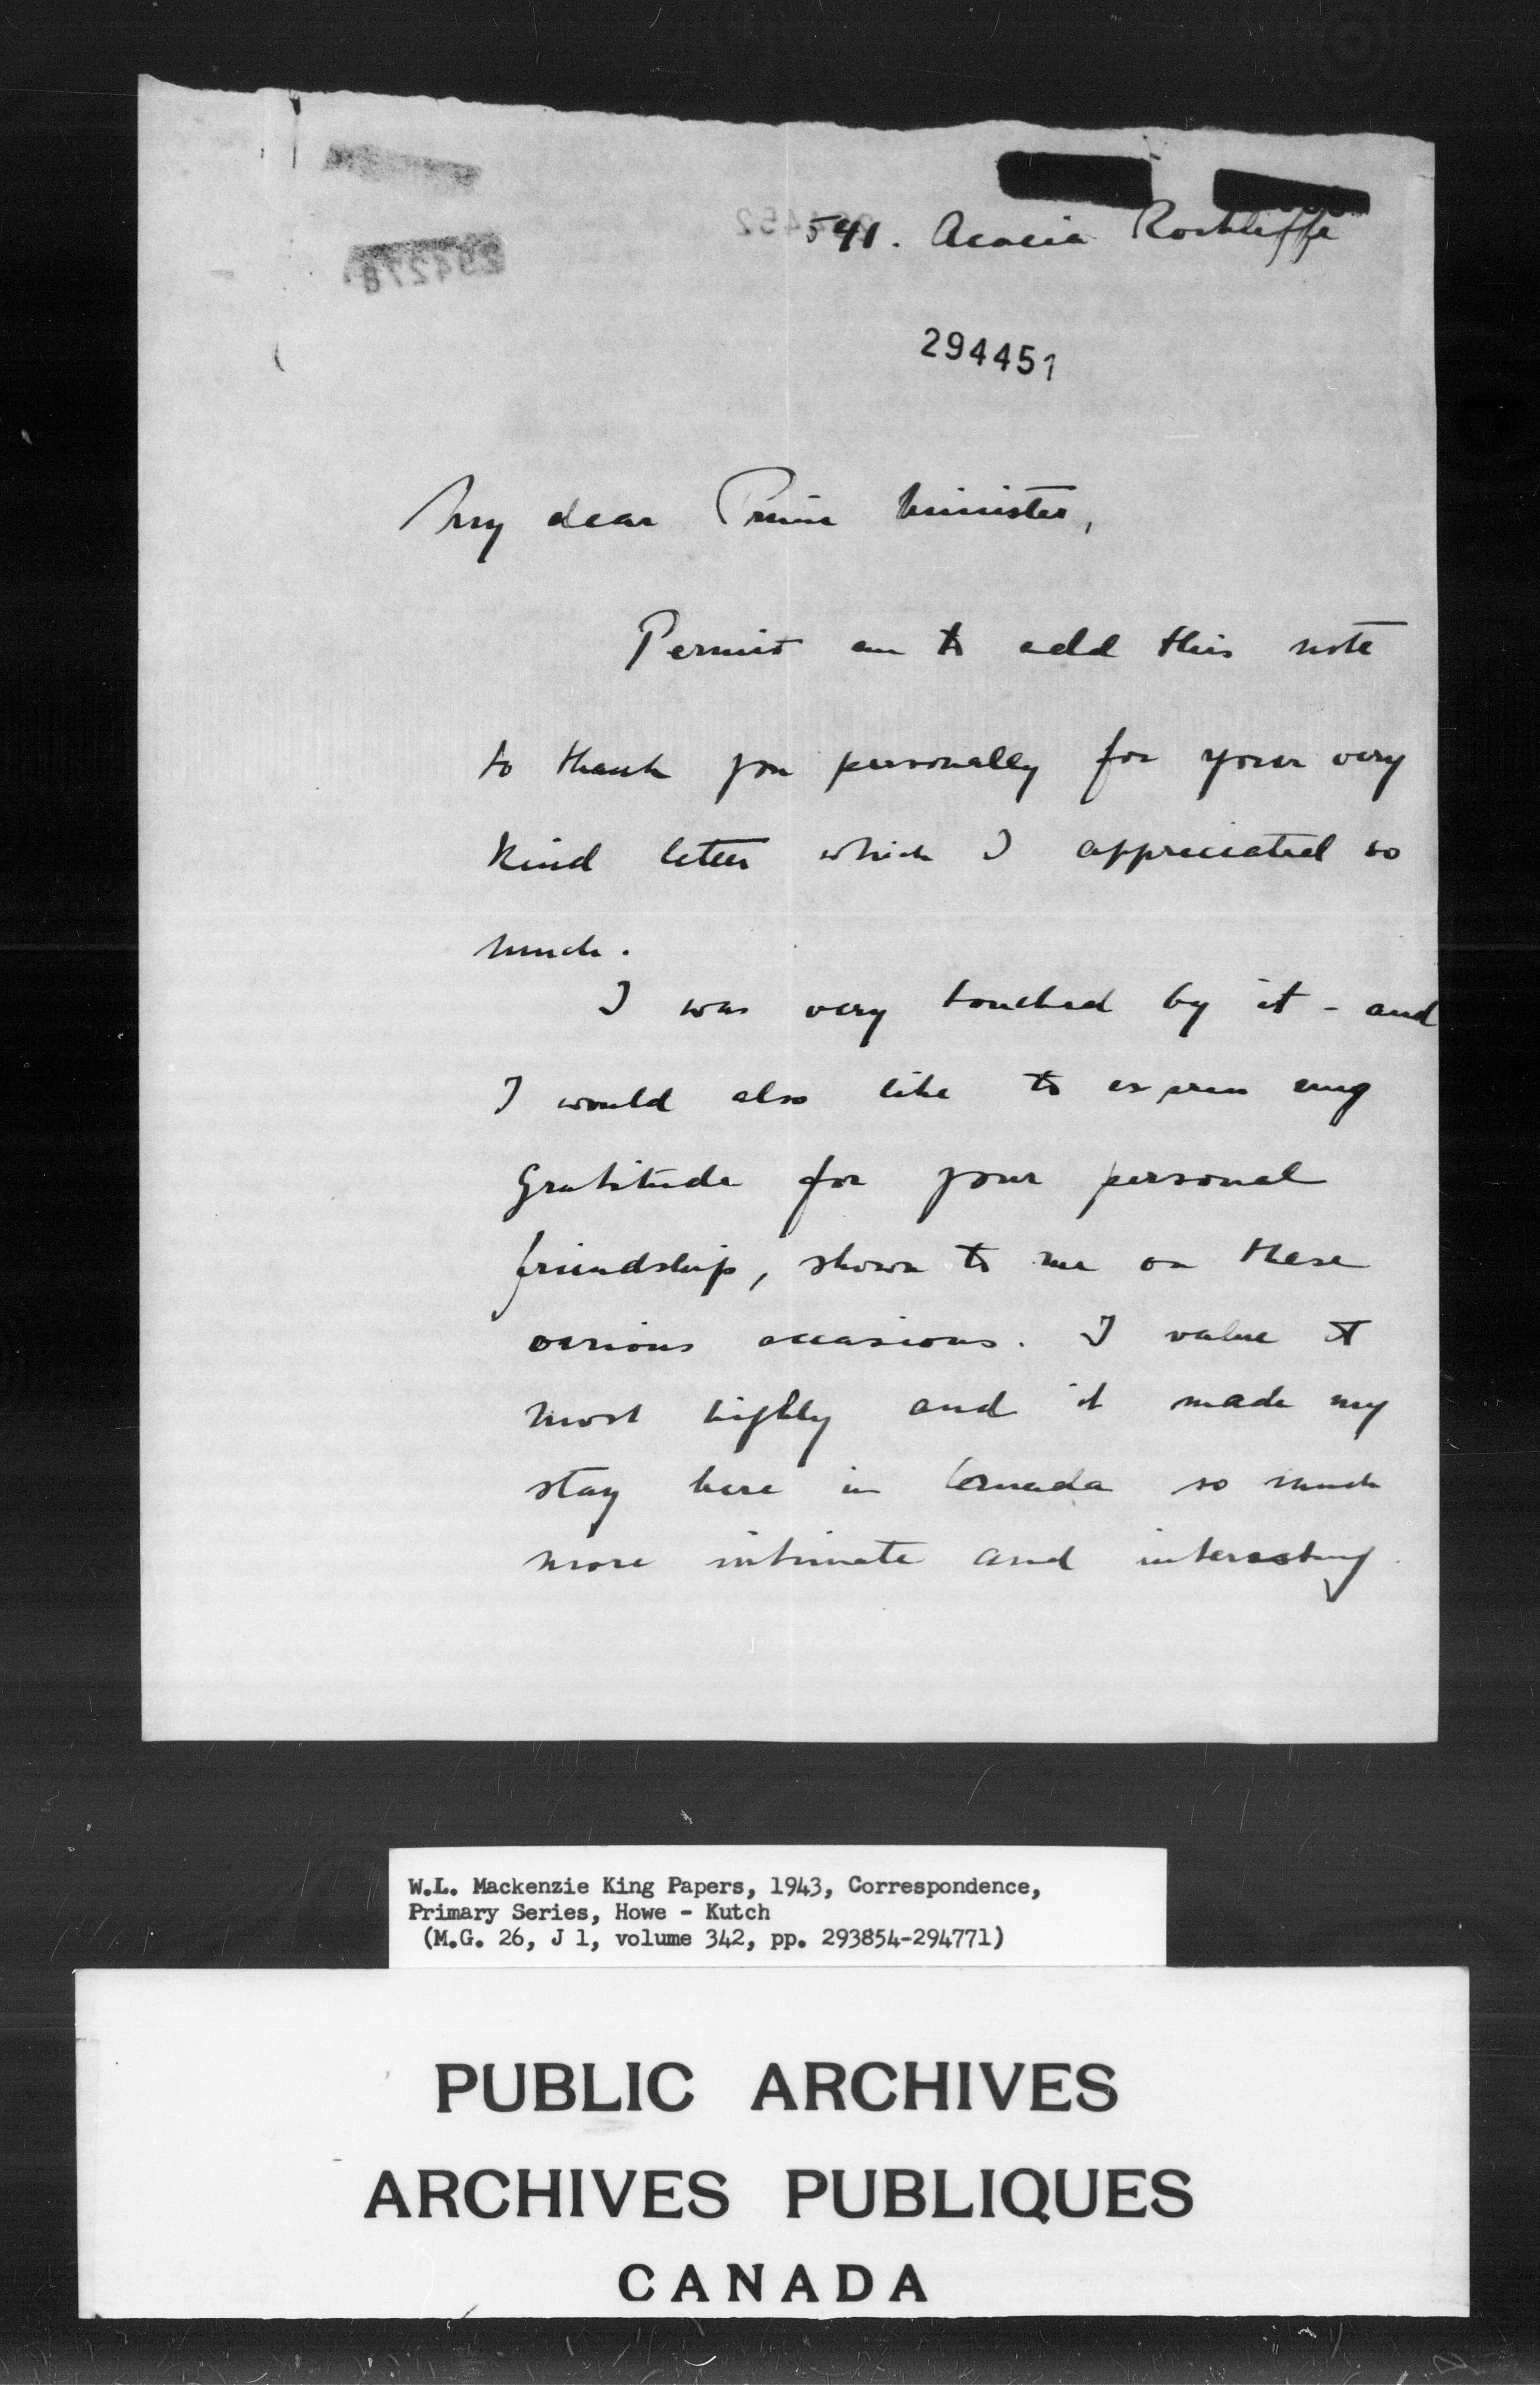 541. Acacia Rockliffe
294451
My dear Prime Minister,
Permit me to add this note
to thank you personally for your very
kind letter which I appreciated so
much.
I was very touched by it - and
I would also like to express my
gratitude for your personal
friendship, shown to me on these
various occasions. I value it
most highly and it made my
stay here in Canada so much
more intimate and interesting
W.L. Mackenzie King Papers, 1943, Correspondence,
Primary Series, Howe - Kutch
(M.G. 26, J 1, volume 342, pp. 293854-294771)
PUBLIC ARCHIVES
ARCHIVES PUBLIQUES
CANADA